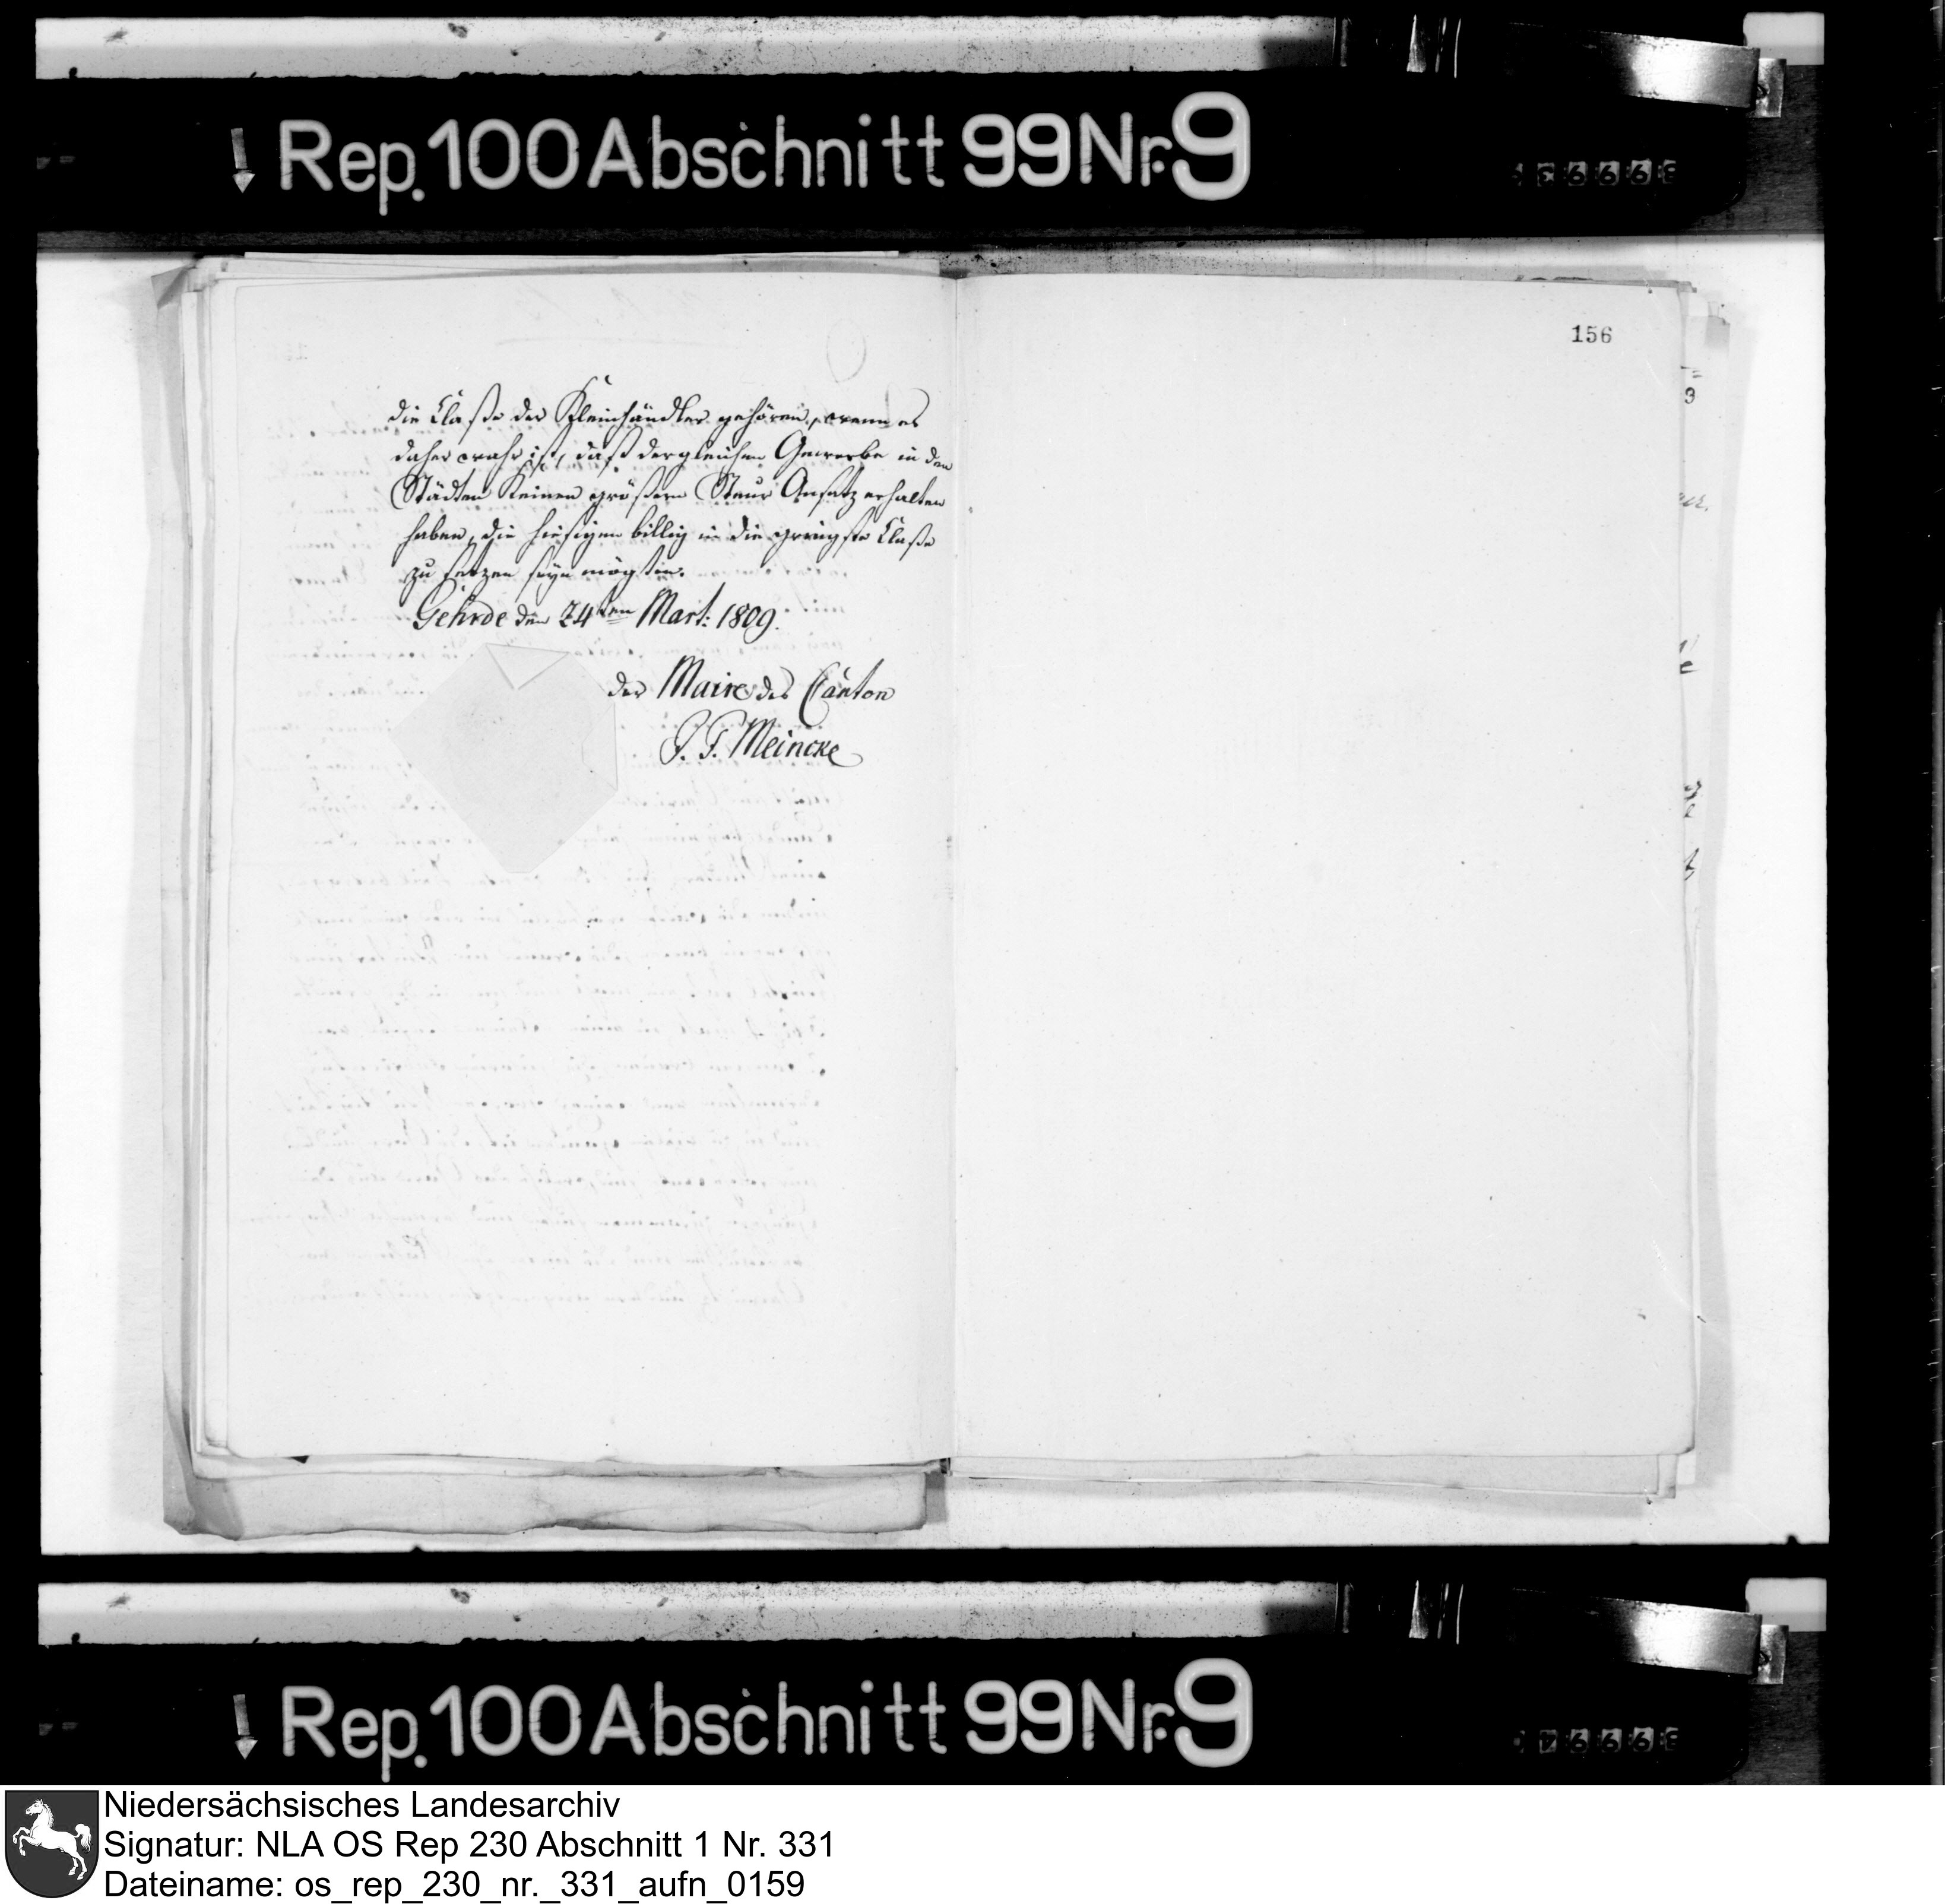 Rep. 100 Abschnitt 99 Nr. 9
156
die Claße der Kleinhändler gehören, wenn es
daher wahr ist, daß dergleichen Gewerbe in den
Städten keinen größern Steur Ansatz erhalten
haben, die hiesigen billig in die gringste Claße
zu setzen seyn mögten.
Gehrde den 24ten Mart: 1809.
der Maire des Canton
Meincke
Rep. 100 Abschnitt 99 Nr. 9
Niedersächsisches Landesarchiv
Signatur: NLA OS Rep 230 Abschnitt 1 Nr. 331
Dateiname: os_rep_230_nr._331_aufn_0159